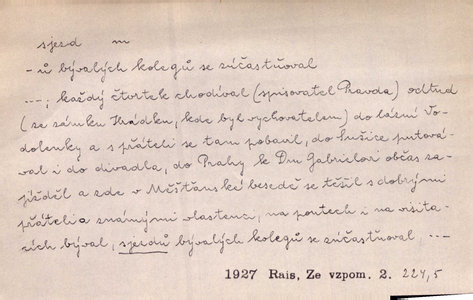 sjezd m
- ů bývalých kolegů se zúčastňoval
---; každý čtvrtek chodíval (spisovatel Pravda) odtud
(ze zámku Hrádku, kde byl vychovatelem) do lázní Vo-
dolenky a s přáteli se tam pobavil, do Sušice putová-
val i do divadla, do Prahy k Dru Gabrielovi občas za-
jížděl a zde v Měšťanské besedě se těšil s dobrými
přáteli a známými vlastenci, na poutech i na visita-
cích býval, sjezdů bývalých kolegů se zúčastňoval, ---
1927 Rais, Ze vzpom. 2. 224,5